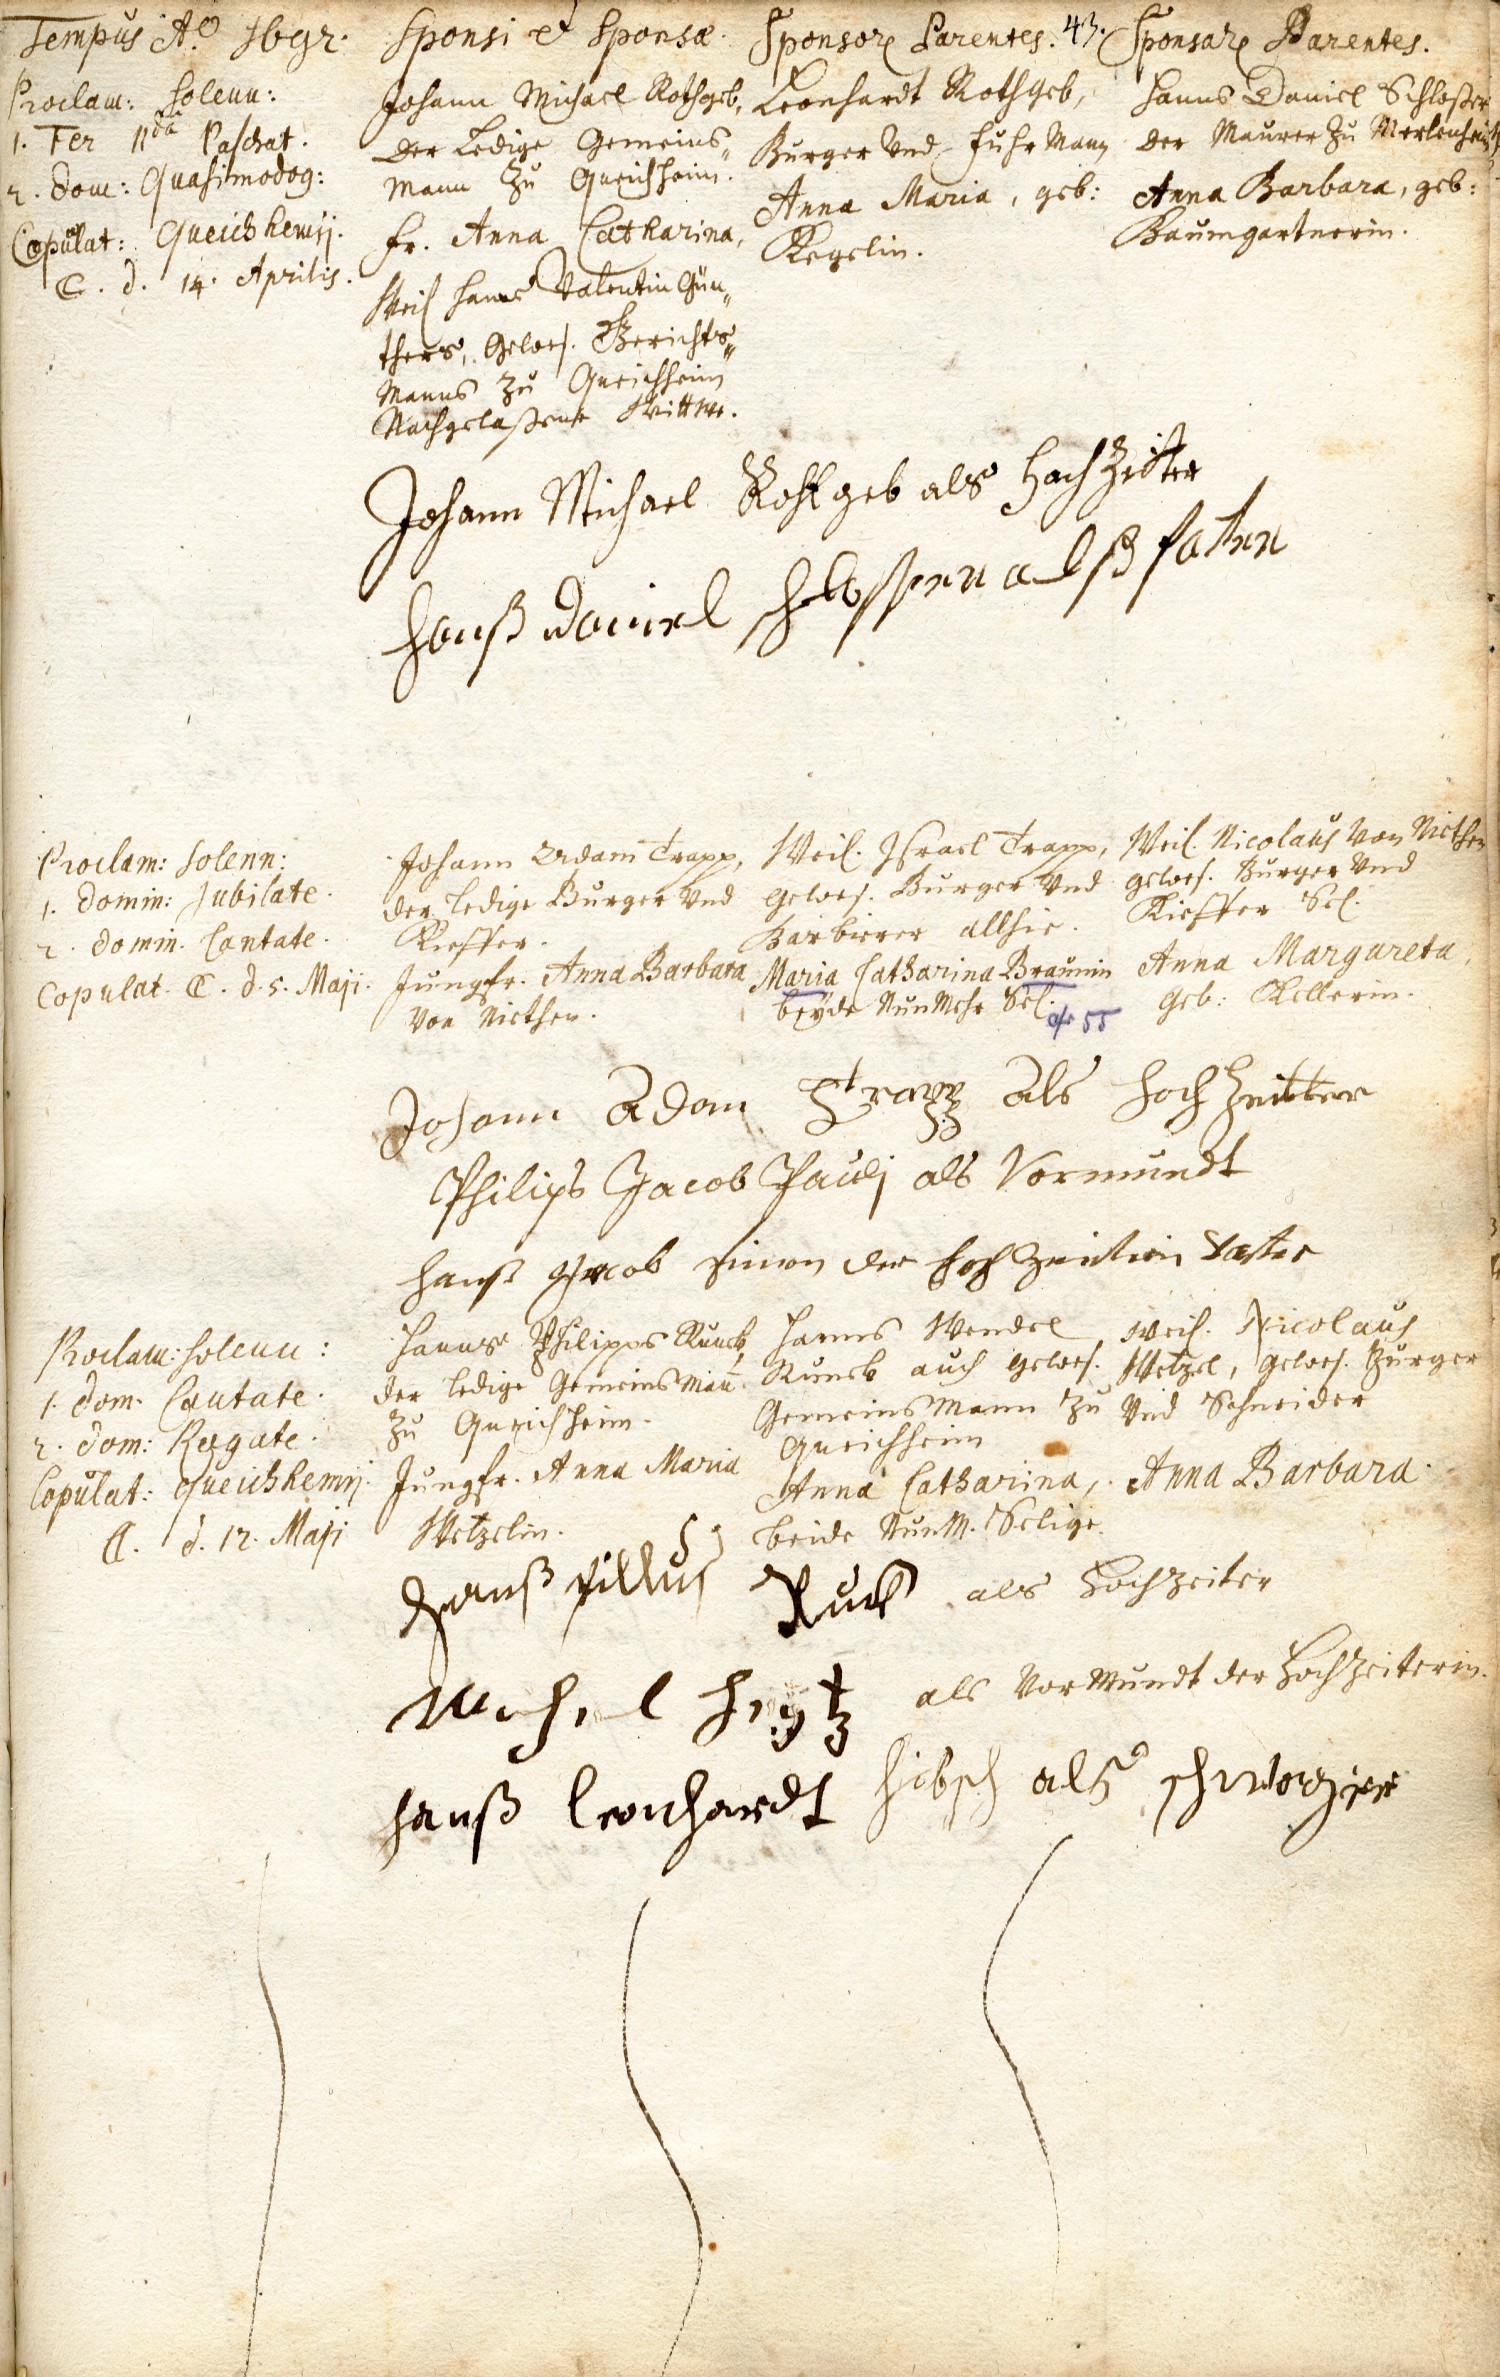 Tempus Aō 1692.
Sponsi et Sponsæ.
Sponsorꝫ Parentes.
43.
Sponsarꝫ Parentes.
Proclam: Solenn:
1. Fer IIda Paschat.
2. Dom: Quasimodog:
Copulat: Queichhemij.
C. d. 14. Aprilis.
Johann Michael Rothgeb,
Der Ledige Gemeins-
Mann Zu Queichheim.
Fr. Anna Catharina,
Weil Hanns Valentin Gün-
thers, Gewes. Gerichts-
Manns Zu Queichheim
Nachgelaßene Wittwe.
Leonhardt Rothgeb,
Burger Und Fuhr Mann
Anna Maria, geb:
Kegelin.
Hanns Daniel Schloßer
Der Maurer Zu Merlenheim
Anna Barbara, geb:
Baumgartnerin.
Johann Michael Rohtgeb als Hoch Zeiter
Hanß Daniel Schlosser alß fatter
Proclam: Solenn:
1. Domin: Jubilate.
2. Domin. Cantate.
Copulat. C. d. 5. Maji.
Johann Adam Trapp,
der ledige Burger Und
Kieffer.
Jungfr. Anna Barbara
Von Niethen.
Weil. Israel Trapp,
gewes. Burger Und
Barbierer allhie.
Maria Catharina Braunin
beyde NunMehr Sel.
55
Weil. Nicolaus Von Niethen
gewes. Burger Und
Kieffer Sel.
Anna Margareta,
geb: Kellerin.
Johann Adam Trapp Als Hoch Zeitter
Philips Jacob Pauli als Vormundt
Hanß Jacob Simon der Hoch Zeiterin Vatter
Proclam: Solenn:
1. Dom. Cantate.
2. Dom: Rogate.
Copulat: Queichhemij.
C. d. 12. Maji
Hanns Philipps Runck,
der ledige Gemeins Man̄
Zu Queichheim.
Jungfr. Anna Maria
Wetzelin.
Hanns Wendel
Runck auch gewes.
Gemeins Mann Zu
Queichheim
Anna Catharina,
beide NunM. Selige.
Weil. Nicolaus
Wetzel, gewes. Burger
Und Schneider
Anna Barbara.
Hanß fillus Runck als Hochzeiter
Michel als VorMundt der Hochzeiterin.
Hanß Leonhardt Hibsch alß schwager